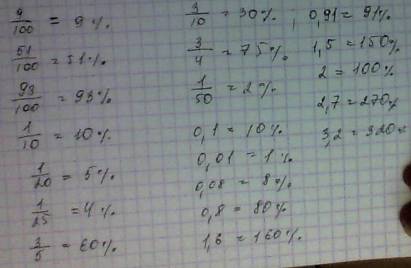 9/100 = 9%
51/100 = 51%
93/100 = 93%
1/10 = 10%
1/20 = 5%
1/25 = 4%
3/5 = 60%
3/10 = 30%
3/4 = 75%
1/50 = 2%
0,1 = 10%
0,01 = 1%
0,08 = 8%
0,8 = 80%
1,6 = 160%
0,91 = 91%
1,5 = 150%
2 = 100%
2,7 = 270%
3,2 = 320%